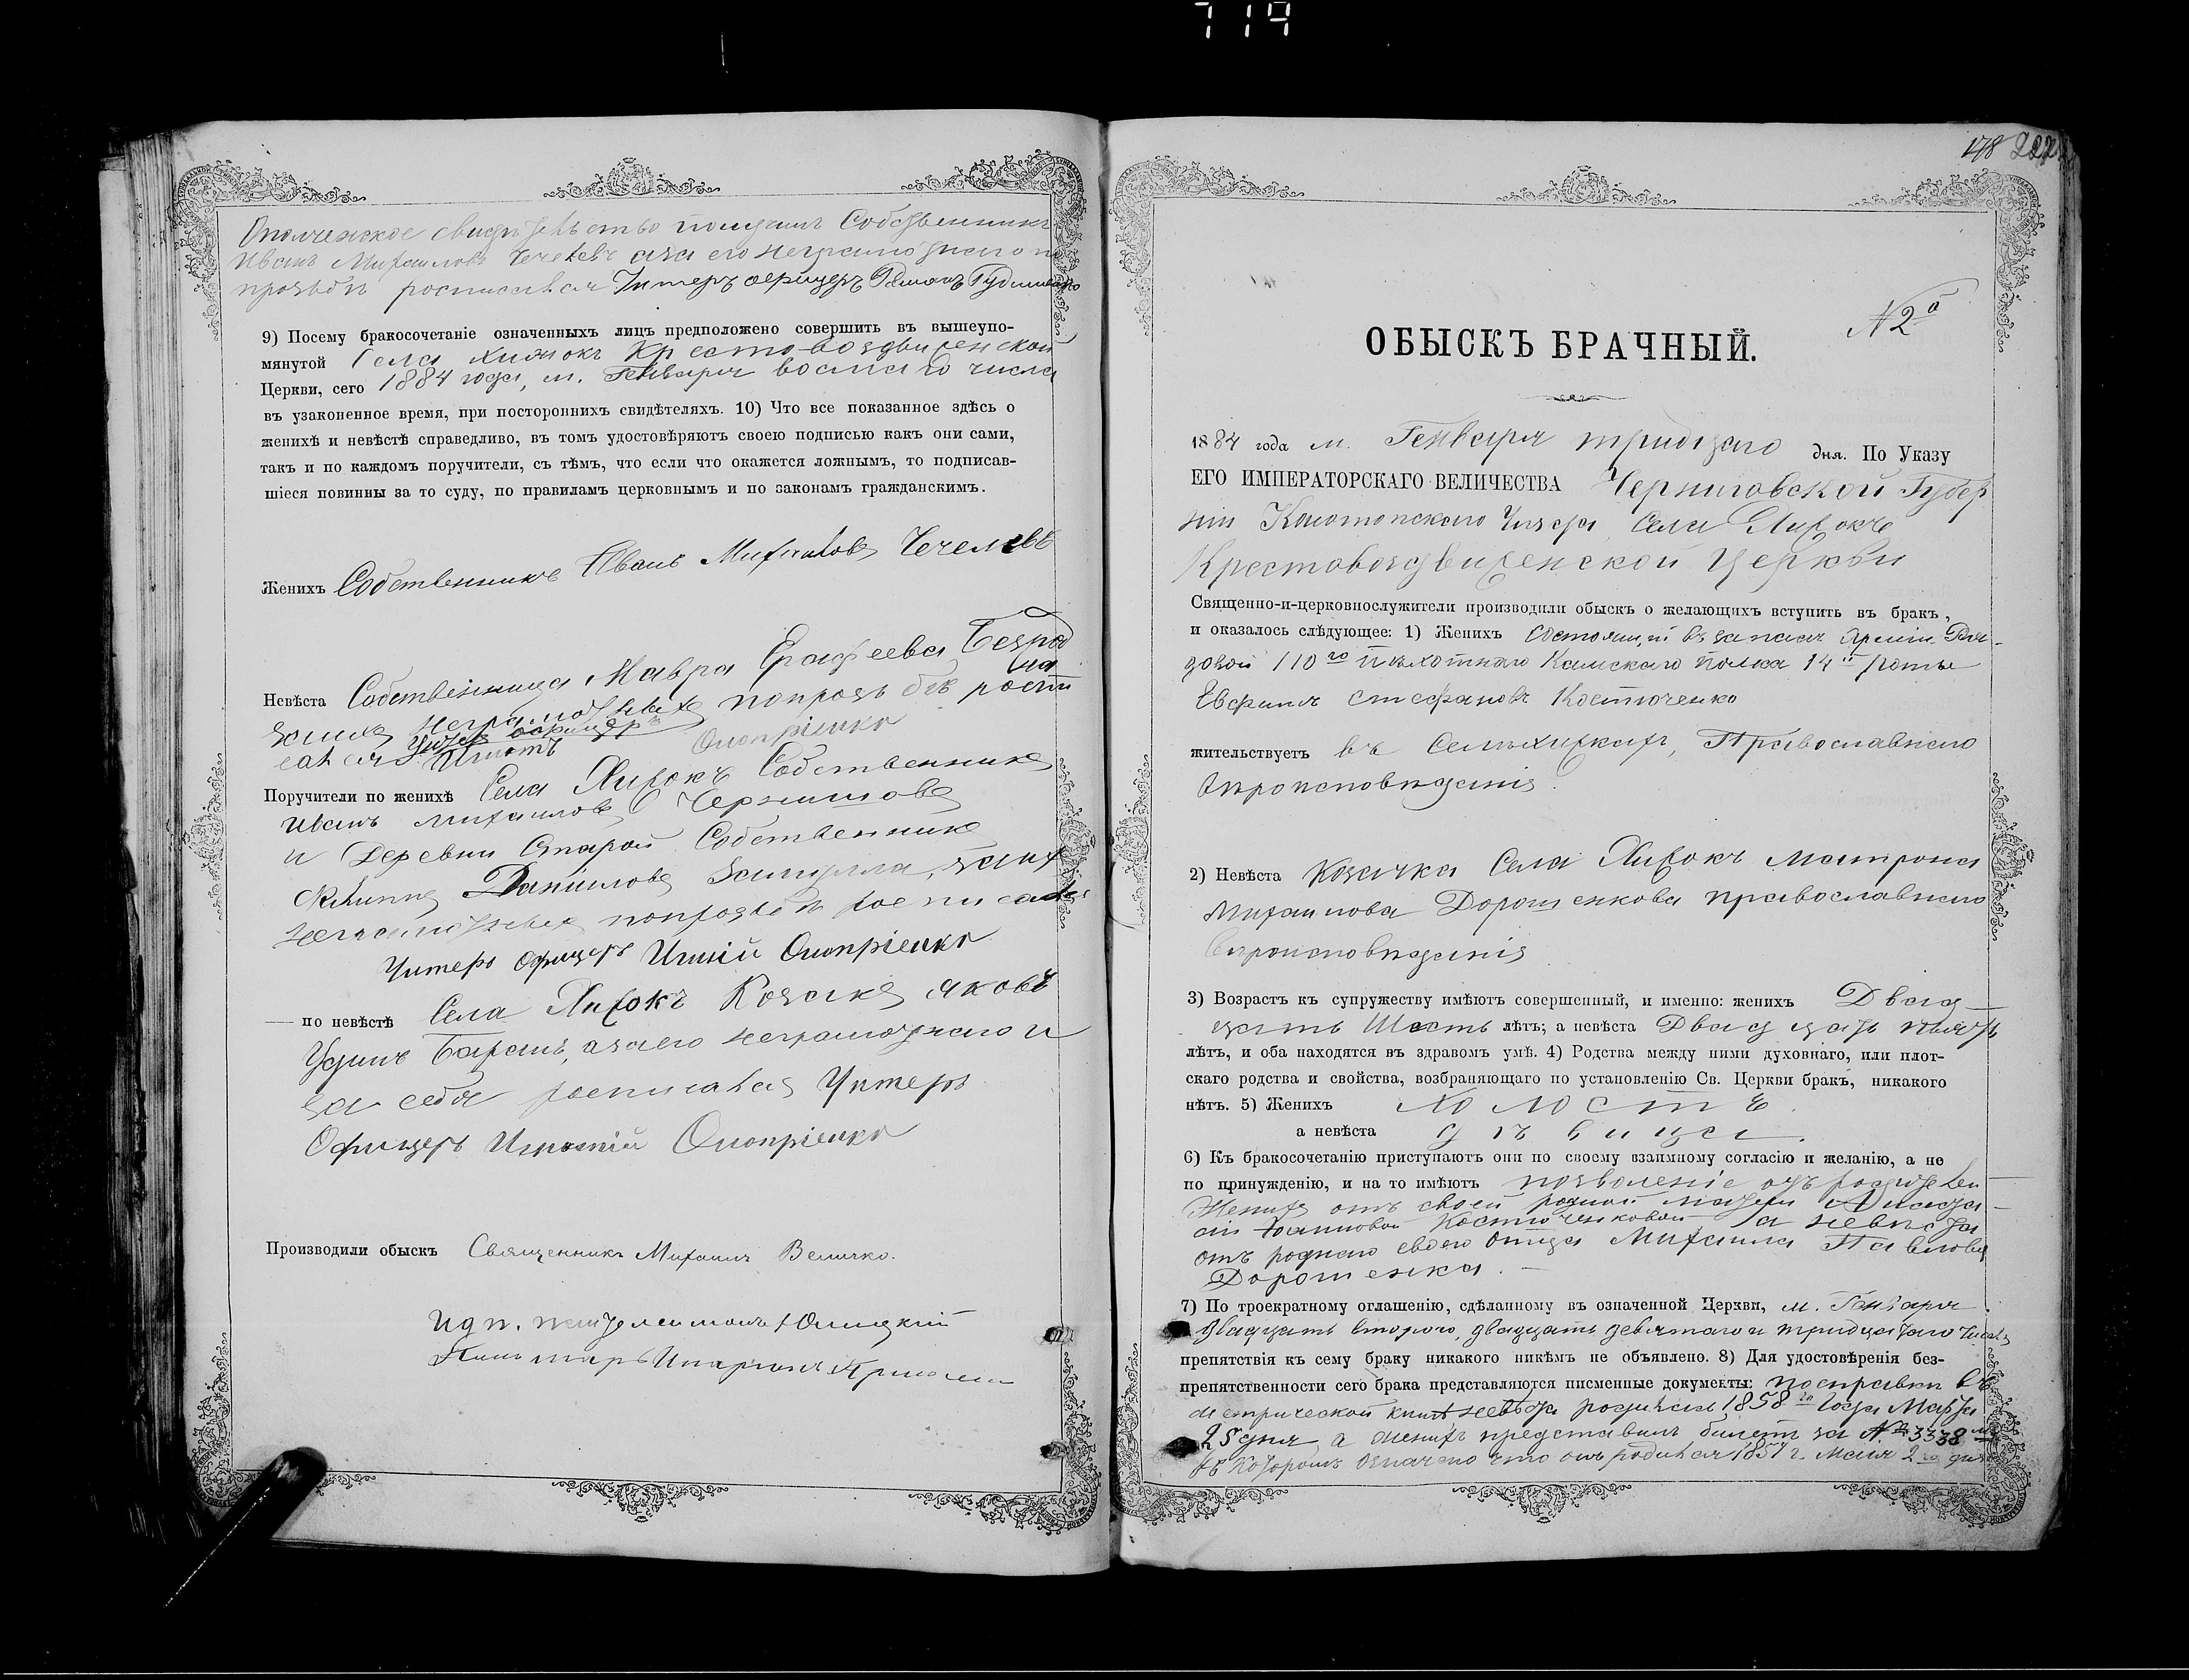 719
Ополченское свидѣтельство получилъ Собственникъ
Иванъ Михаиловъ Чечелевъ аза его неграмотнаго по
прозьбѣ росписался Унтеръ офицеръ Романъ Гудименко
9) Посему бракосочетаніе означенныхъ лицъ предположено совершить въ вышеупо-
мянутой Села Хижокъ Крестовоздвиженской
Церкви, сего 1884 года, м. Генваря восмаго числа
въ узаконенное время, при постороннихъ свидѣтеляхъ. 10) Что все показанное здѣсь о
женихѣ и невѣстѣ справедливо, въ томъ удостовѣряютъ своею подписью какъ они сами,
такъ и по каждомъ поручители, съ тѣмъ, что если что окажется ложнымъ, то подписав-
шіеся повинны за то суду, по правиламъ церковнымъ и по законамъ гражданскимъ.
Женихъ Собственникъ Иванъ Михаиловъ Чечелевъ
Невѣста Собственница Мавра Ерофеева
неграмотныхъ попрозьбѣ роспи
сался Унтеръ офицеръ
Оноприенко
Поручители по женихѣ Села Хижокъ Собственникъ
Иванъ Михаиловъ
и Деревни Старой Собственникъ
Филиппъ Даниловъ заихъ
неграмотныхъ попрозьбѣ росписался
Унтеръ Офицеръ Игнатій Онопріенко
по невѣстѣ Села Хижокъ Козакъ Яковъ
азаего неграмотнаго и
за себя росписался Унтеръ
Офицеръ Игнатій Онопріенко
Производили обыскъ Священникъ Михаилъ Величко.
И д п.
Пономарь
178 222
№ 2й
ОБЫСКЪ БРАЧНЫЙ.
1884 года м. Генваря тридцаго дня. По Указу
ЕГО ИМПЕРАТОРСКАГО ВЕЛИЧЕСТВА Черниговской Губер
ніи Конотопскаго Уѣзда, Села Хижокъ
Крестовоздвиженской Церкви
Священно-и-церковнослужители производили обыскъ о желающихъ вступить въ бракъ,
и оказалось слѣдующее: 1) Женихъ Состоящій въ запасѣ Арміи Ря-
довой 110го пѣхотнаго Камскаго полка 14й роты
Евфимъ Стефановъ Костюченко
жительствуетъ въ Селѣ Хижкахъ, Православнаго
вѣроисповѣданія.
2) Невѣста Козачка Села Хижокъ Матрона
Михаилова Дорошенкова православнаго
вѣроисповѣданія
3) Возрастъ къ супружеству имѣютъ совершенный, и именно: женихъ Двад-
цать Шесть лѣтъ; а невѣста Двадцать пять
лѣтъ, и оба находятся въ здравомъ умѣ. 4) Родства между ними духовнаго, или плот-
скаго родства и свойства, возбраняющаго по установленію Св. Церкви бракъ, никакого
нѣтъ. 5) Женихъ Холостъ
а невѣста дѣвица.
6) Къ бракосочетанію приступаютъ они по своему взаимному согласію и желанію, а не
по принужденію, и на то имѣютъ позволеніе отъ родителей
Женихъ отъ своей родной матери
Костюченковой, а невѣста
отъ роднаго своего отца Михаила Павлова
Дорошенка.
7) По троекратному оглашенію, сдѣланному въ означенной Церкви, м. Генваря
двадцать втораго, двадцать девятаго и тридцатаго числъ
препятствія къ сему браку никакого никѣмъ не объявлено. 8) Для удостовѣренія без-
препятственности сего брака представляются писменные документы: посправки въ
метрической книгѣ невѣста родилась 1858го года Марта
25 дня, а женихъ представилъ билетъ за № 3338мъ
въ которомъ означено что онъ родился 1857 г. Мая 2го дня